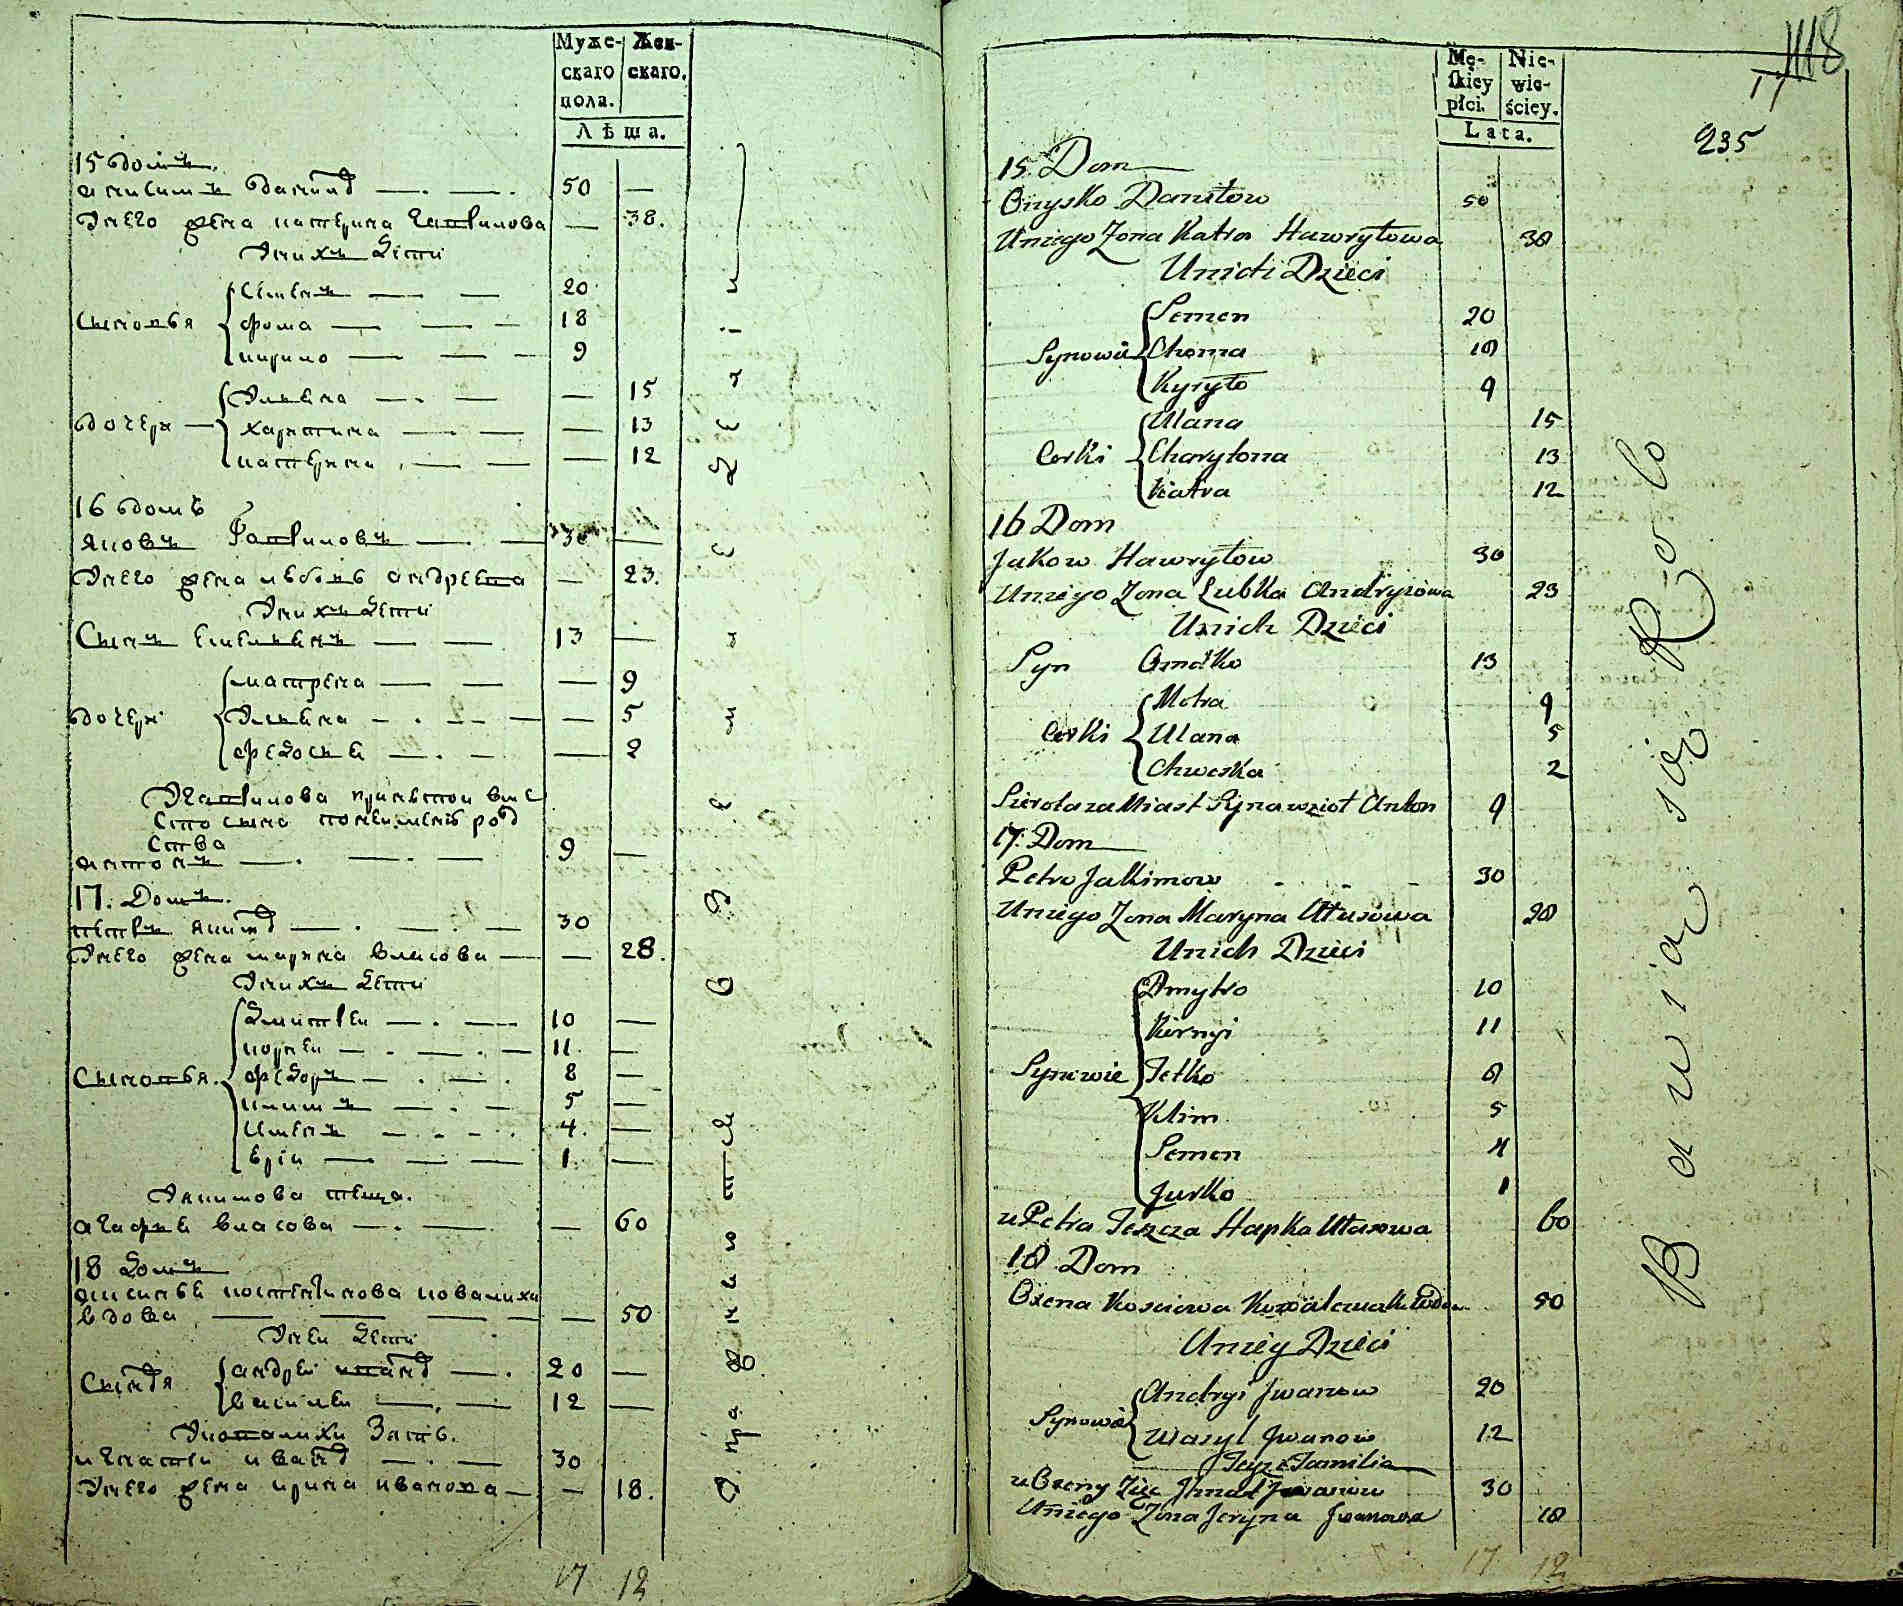 Муже-
скаго
пола.
Жен-
скаго.
Лѣта.
15 домъ.
анисимъ данилов — . — . 50 —
Унего жена катерина гаврилова — 38.
Унихъ дѣти
Сыновья
семенъ — — 20
фома — — — 18
кирило — — — 9
дочери —
Ульяна — . — — 15
харитина — — — 13
катерина . — — — 12
16 домъ
яковъ Гавриловъ — — 30 —
Унего жена любовь андреева — 23.
Унихъ дети
Сынъ емельянъ — — 13 —
дочери
матрена — — — 9
Ульяна — . — — — 5
федосья — . — — 2
Угаврилова принятой вме
сто сына
ства
антонъ — . — . — 9 —
17. Домъ.
петръ якимов — . — . — 30
Унего жена марина власова — — 28.
Унихъ дети
Сыновья.
дмитрей — . — 10 —
корней — . — . — 11. —
федоръ — . — . 8 —
климъ — . — 5 —
Семенъ — . — . 4. —
юрий — — — 1. —
Уякимова теща.
агафья власова — . — — 60
18 домъ
аксинья ковалиха
вдова — — — — — 50
Уней дети
андрей иванов — . 20 —
василей — . — 12 —
Уковалихи Зять.
игнатей иванов — . — 30
Унего жена ирина иванова — — 18.
17 12
118
17
235
Mę-
skiey
płci.
Nie-
wie-
ściey.
Lata.
15 Dom
Onysko Daniłow 50
Uniego Zona Katra Hawryłowa 38
Unich Dzieci
Synowie
Semen 20
Choma 18
Kyryło 9
Corki
Ulana 15
Charytona 13
Katra 12
16 Dom
Jakow Hawryłow 30
Uniego Zona Lubka Andryiowa 23
Unich Dzieci
Syn Omelko 13
Corki
Motra 9
Ulana 5
Chweska 2
Sierota za Miast Syna wziot Anton 9
17. Dom
Petro Jakimow . - - 30
Uniego Zona Maryna Ułasowa 28
Unich Dzieci
Synowie
Dmytro 10
Kornyi 11
Fetko 8
Klim 5
Semen 4
Jurko 1
u Petra Teszcza Hapka Ułasowa 60
18 Dom
Oxena Kowalowa 50
Uniey Dzieci
Synowie
Andryi Jwanow 20
Wasyl Jwanow 12
Teyze Familia
u Oxeny Ziec Jhnat Jwanow 30
Uniego Zona Jeryna Jwanowa 18
17 12
Bawiąc się Rolo